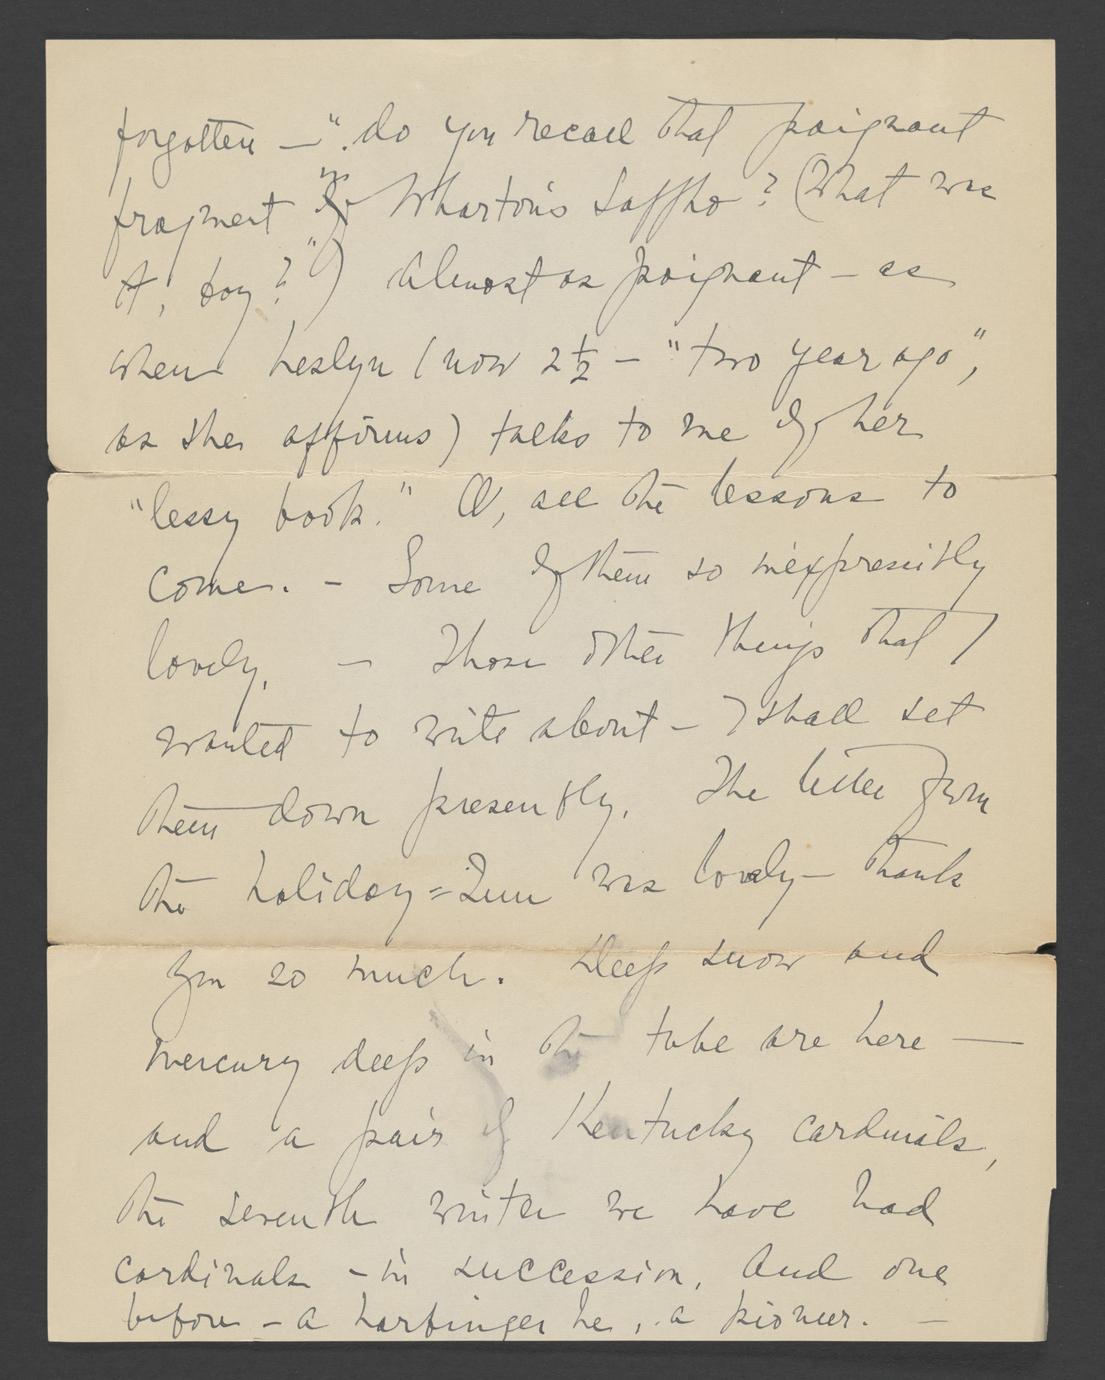 forgotten — ". do you recall that poignant
fragment in Wharton's Saffho? (What was
it, boy?") Almost as poignant — as
when Leslyn (now 2½ — "two year ago",
as she affirms) talks to me of her
"lessy book." O, all the lessons to
come. - Some of them so inexpressibly
lovely. — Those other things that I
wanted to write about — I shall set
them down presently. The letter from
the holiday = Inn was lovely — thank
you so much. Deep snow and
mercury deep in the tube are here —
and a pair of Kentucky cardinals,
the seventh winter we have had
cardinals - in succession, and one
before - a harbinger he, a pioneer. —